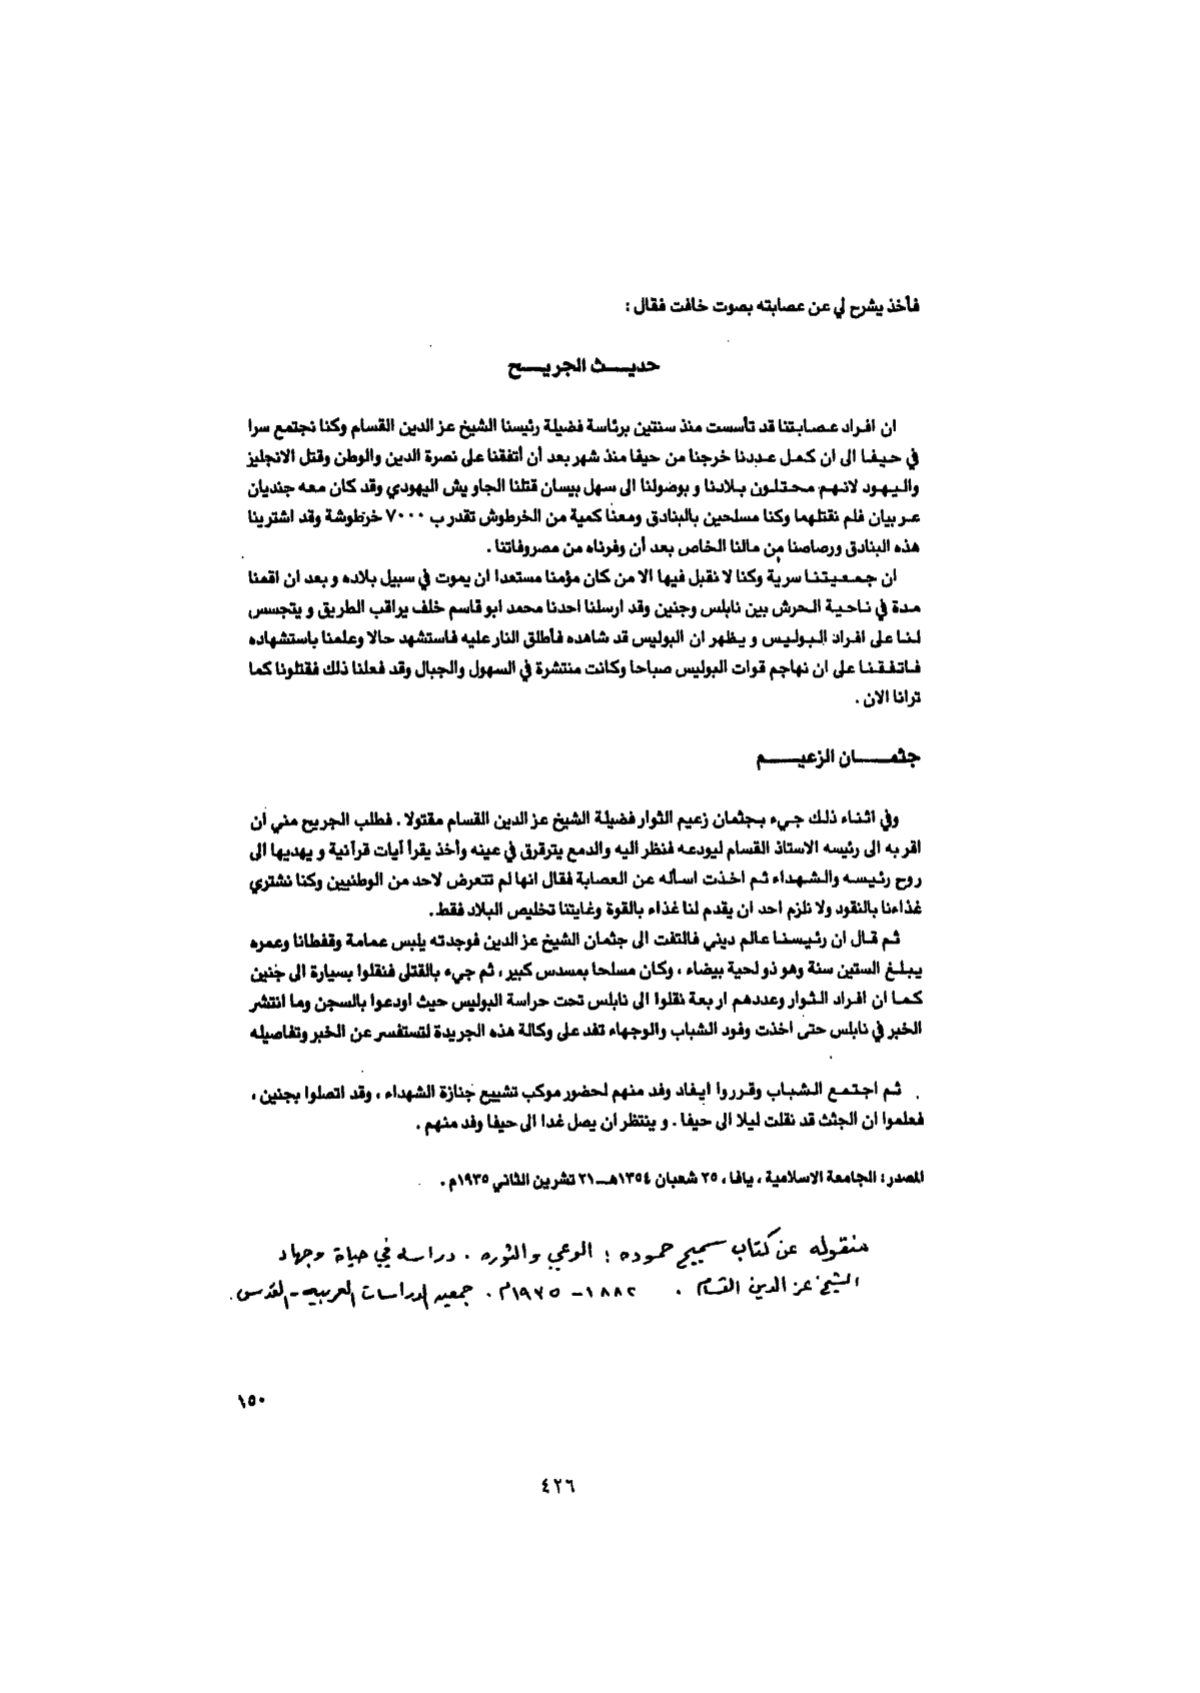 فأخذ يشرح لي عن عصابته بصوت خافت فقال :
حديث الجريح
ان افراد عصابتنا قد تأسست منذ سنتين برئاسة فضيلة رئيسنا الشيخ عز الدين القسام وكنا نجتمع سرا
في حيفا الى ان كمل عددنا خرجنا من حيفا منذ شهر بعد أن أتفقنا على نصرة الدين والوطن وقتل الانجليز
واليهود لانهم محتلون بلادنا وبوضولنا الى سهل بيسان قتلنا الجاويش اليهودي وقد كان معه جنديان
عربيان فلم نقتلهما وكنا مسلحين بالبنادق ومعنا كمية من الخرطوش تقدر ب ٧٠٠٠ خرطوشة وقد اشترينا
هذه البنادق ورصاصنا من مالنا الخاص بعد أن وفرناه من مصروفاتنا .
ان جمعيتنا سرية وكنا لا نقبل فيها الا من كان مؤمنا مستعدا ان يموت في سبيل بلاده وبعد ان اقمنا
مدة في ناحية الحرش بين نابلس وجنين وقد ارسلنا احدنا محمد ابو قاسم خلف يراقب الطريق ويتجسس
لنا على افراد البوليس ويظهر ان البوليس قد شاهده فأطلق النار عليه فاستشهد حالا وعلمنا باستشهاده
فاتفقنا على ان نهاجم قوات البوليس صباحا وكانت منتشرة في السهول والجبال وقد فعلنا ذلك فقتلونا كما
ترانا الان .
جثمان الزعيم
وفي اثناء ذلك جيء بجثمان زعيم الثوار فضيلة الشيخ عز الدين القسام مقتولا . فطلب الجريح مني ان
اقربه الى رئيسه الاستاذ القسام ليودعه فنظر اليه والدمع يترقرق في عينه وأخذ يقرأ آيات قرآنية ويهديها الى
روح رئيسه والشهداء ثم اخذت اسأله عن العصابة فقال انها لم تتعرض لاحد من الوطنيين وكنا نشتري
غذاءنا بالنقود ولا نلزم احد ان يقدم لنا غذاء بالقوة وغايتنا تخليص البلاد فقط.
ثم قال ان رئيسنا عالم ديني فالتفت الى جثمان الشيخ عز الدين فوجدته يلبس عمامة وقفطانا وعمره
يبلغ الستين سنة وهو ذو لحية بيضاء ، وكان مسلحا بمسدس كبير ، ثم جيء بالقتلى فنقلوا بسيارة الى جنين
كما ان افراد الثوار وعددهم اربعة نقلوا الى نابلس تحت حراسة البوليس حيث اودعوا بالسجن وما انتشر
الخبر في نابلس حتى اخذت وفود الشباب والوجهاء تفد على وكالة هذه الجريدة لتستفسر عن الخبر وتفاصيله
ثم اجتمع الشباب وقرروا ايفاد وفد منهم لحضور موكب تشييع جنازة الشهداء ، وقد اتصلوا بجنين ،
فعلموا ان الجثث قد نقلت ليلا الى حيفا . وينتظر ان يصل غدا الى حيفا وفد منهم .
المصدر : الجامعة الاسلامية ، يافا ، ٢٥ شعبان ١٣٥٤هـ—٢١ تشرين الثاني ١٩٣٥م .
منقوله عن كتاب سميح حموده : الوعي والثوره . دراسه في حياة وجهاد
الشيخ عز الدين القسام . ١٨٨٢ - ١٩٣٥م . جمعيه الدراسات العربيه - القدس .
١٥٠
٤٢٦